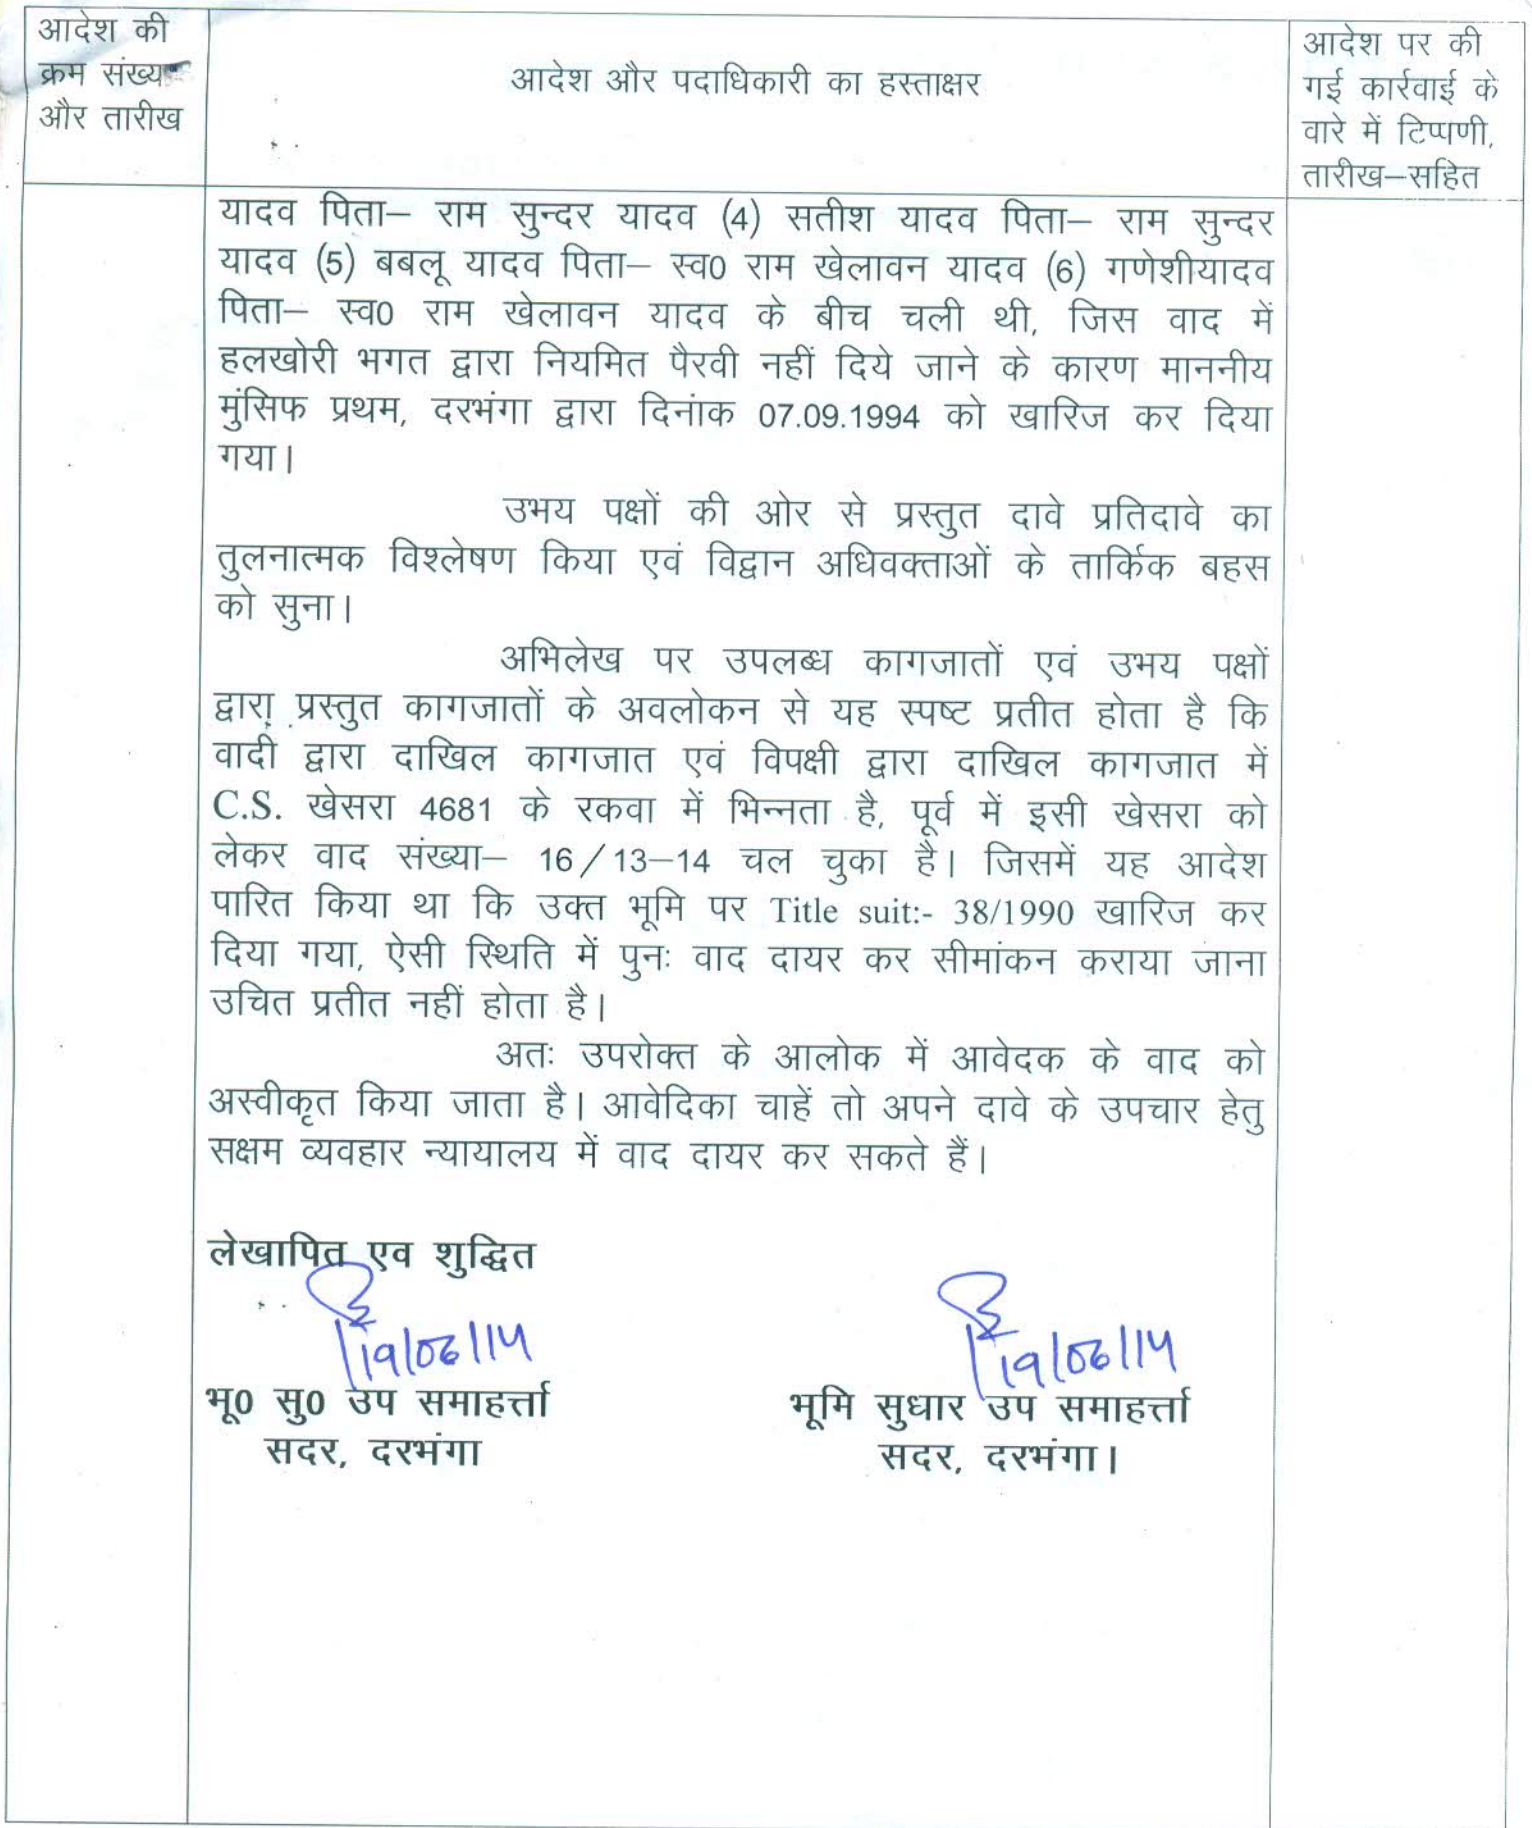 आदेश की
क्रम संख्या
और तारीख
आदेश और पदाधिकारी का हस्ताक्षर
आदेश पर की
गई कार्रवाई के
वारे में टिप्पणी,
तारीख–सहित
यादव पिता– राम सुन्दर यादव (4) सतीश यादव पिता– राम सुन्दर
यादव (5) बबलू यादव पिता– स्व0 राम खेलावन यादव (6) गणेशीयादव
पिता– स्व0 राम खेलावन यादव के बीच चली थी, जिस वाद में
हलखोरी भगत द्वारा नियमित पैरवी नहीं दिये जाने के कारण माननीय
मुंसिफ प्रथम, दरभंगा द्वारा दिनांक 07.09.1994 को खारिज कर दिया
गया।
उभय पक्षों की ओर से प्रस्तुत दावे प्रतिदावे का
तुलनात्मक विश्लेषण किया एवं विद्वान अधिवक्ताओं के तार्किक बहस
को सुना।
अभिलेख पर उपलब्ध कागजातों एवं उभय पक्षों
द्वारा प्रस्तुत कागजातों के अवलोकन से यह स्पष्ट प्रतीत होता है कि
वादी द्वारा दाखिल कागजात एवं विपक्षी द्वारा दाखिल कागजात में
C.S. खेसरा 4681 के रकवा में भिन्नता है, पूर्व में इसी खेसरा को
लेकर वाद संख्या– 16/13–14 चल चुका है। जिसमें यह आदेश
पारित किया था कि उक्त भूमि पर Title suit:- 38/1990 खारिज कर
दिया गया, ऐसी स्थिति में पुनः वाद दायर कर सीमांकन कराया जाना
उचित प्रतीत नहीं होता है।
अतः उपरोक्त के आलोक में आवेदक के वाद को
अस्वीकृत किया जाता है। आवेदिका चाहें तो अपने दावे के उपचार हेतु
सक्षम व्यवहार न्यायालय में वाद दायर कर सकते हैं।
लेखापित एव शुद्धित
19/06/14
19/06/14
भू0 सु0 उप समाहर्त्ता
भूमि सुधार उप समाहर्त्ता
सदर, दरभंगा
सदर, दरभंगा।